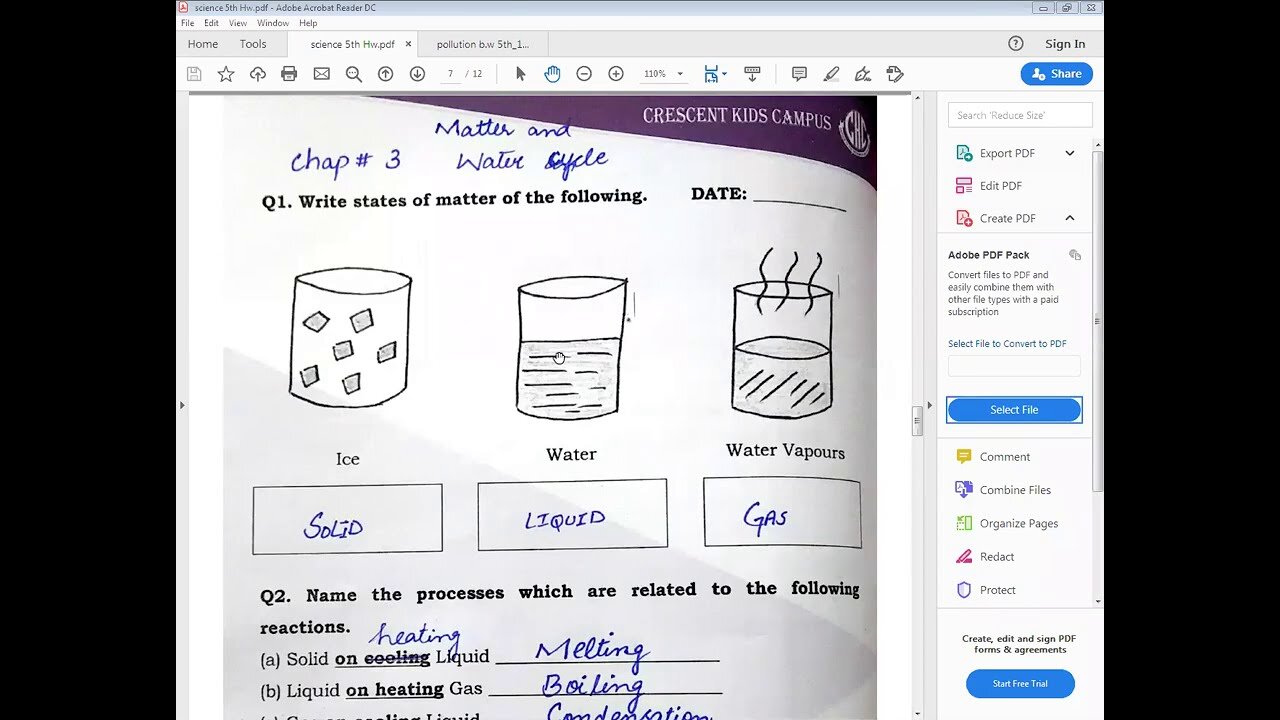 science 5th Hw.pdf - Adobe Acrobat Reader DC
File Edit View Window Help
Home Tools science 5th Hw.pdf × pollution b.w 5th_1... Sign In
7 / 12 110% Share
CRESCENT KIDS CAMPUS
CKC
Matter and
Chap # 3 Water Cycle
Q1. Write states of matter of the following. DATE:
Ice Water Water Vapours
SOLID LIQUID GAS
Q2. Name the processes which are related to the following
reactions.
heating
(a) Solid on cooling Liquid Melting
(b) Liquid on heating Gas Boiling
(c) Gas on cooling Liquid Condensation
Search 'Reduce Size'
Export PDF
Edit PDF
Create PDF
Adobe PDF Pack
Convert files to PDF and
easily combine them with
other file types with a paid
subscription
Select File to Convert to PDF
Select File
Comment
Combine Files
Organize Pages
Redact
Protect
Create, edit and sign PDF
forms & agreements
Start Free Trial